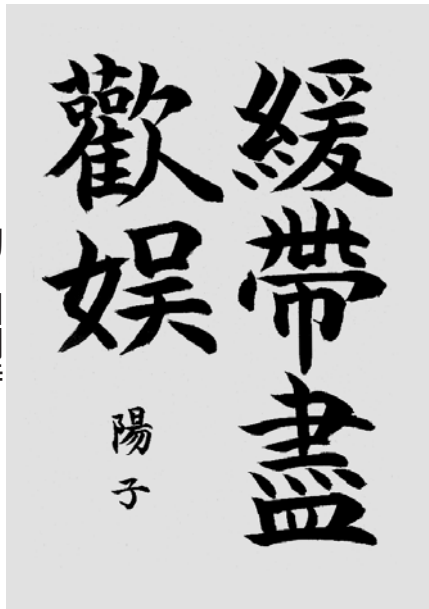 緩帶盡
歡娯
陽子